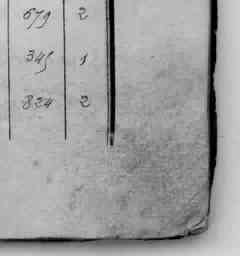 679 2
345 1
824 2